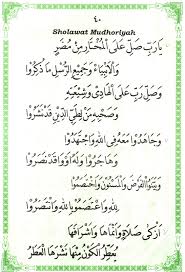 ٤٠
Sholawat Mudhoriyah
يَارَبِّ صَلِّ عَلَى الْمُخْتَارِ مِنْ مُضَرٍ
وَالْأَنْبِيَاءِ وَجَمِيْعِ الرُّسْلِ مَا ذُكِرُوا
وَصَلِّ رَبِّ عَلَى الْهَادِي وَشِيْعَتِهِ
وَصَحْبِهِ مَنْ لِطَيِّ الدِّيْنِ قَدْ نَشَرُوا
وَجَاهَدُوا مَعَهُ فِي اللهِ وَاجْتَهَدُوا
وَهَاجَرُوا وَلَهُ آوَوْا وَقَدْ نَصَرُوا
وَبَيَّنُوا الْفَرْضَ وَالْمَسْنُوْنَ وَاعْتَصَبُوا
لِلّٰهِ وَاعْتَصَمُوا بِاللهِ وَانْتَصَرُوا
أَزْكَى صَلَاةٍ وَأَنْمَاهَا وَأَشْرَفَهَا
يُعَطِّرُ الْكَوْنَ مِنْهَا نَشْرُهَا الْعَطِرُ